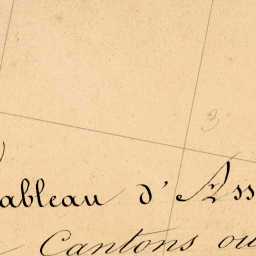 3
ableau d'Ass
Cantons ou